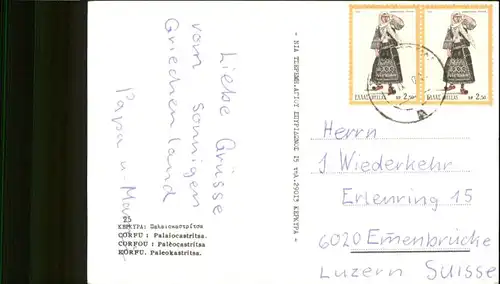 Liebe Grüsse
vom sonnigen
Griechenland
Papa u. Mami
25
ΚΕΡΚΥΡΑ: Παλαιοκαστρίτσα
CORFU : Palaiocastritsa.
CORFOU : Paléocastritsa
KORFU. Paleokastritsa.
ΕΛΛΑΣ HELLAS ΔΡ 2,50
ΕΛΛΑΣ HELLAS ΔΡ 2,50
Herrn
J Wiederkehr
Erlenring 15
6020 Emenbrücke
Luzern Suisse